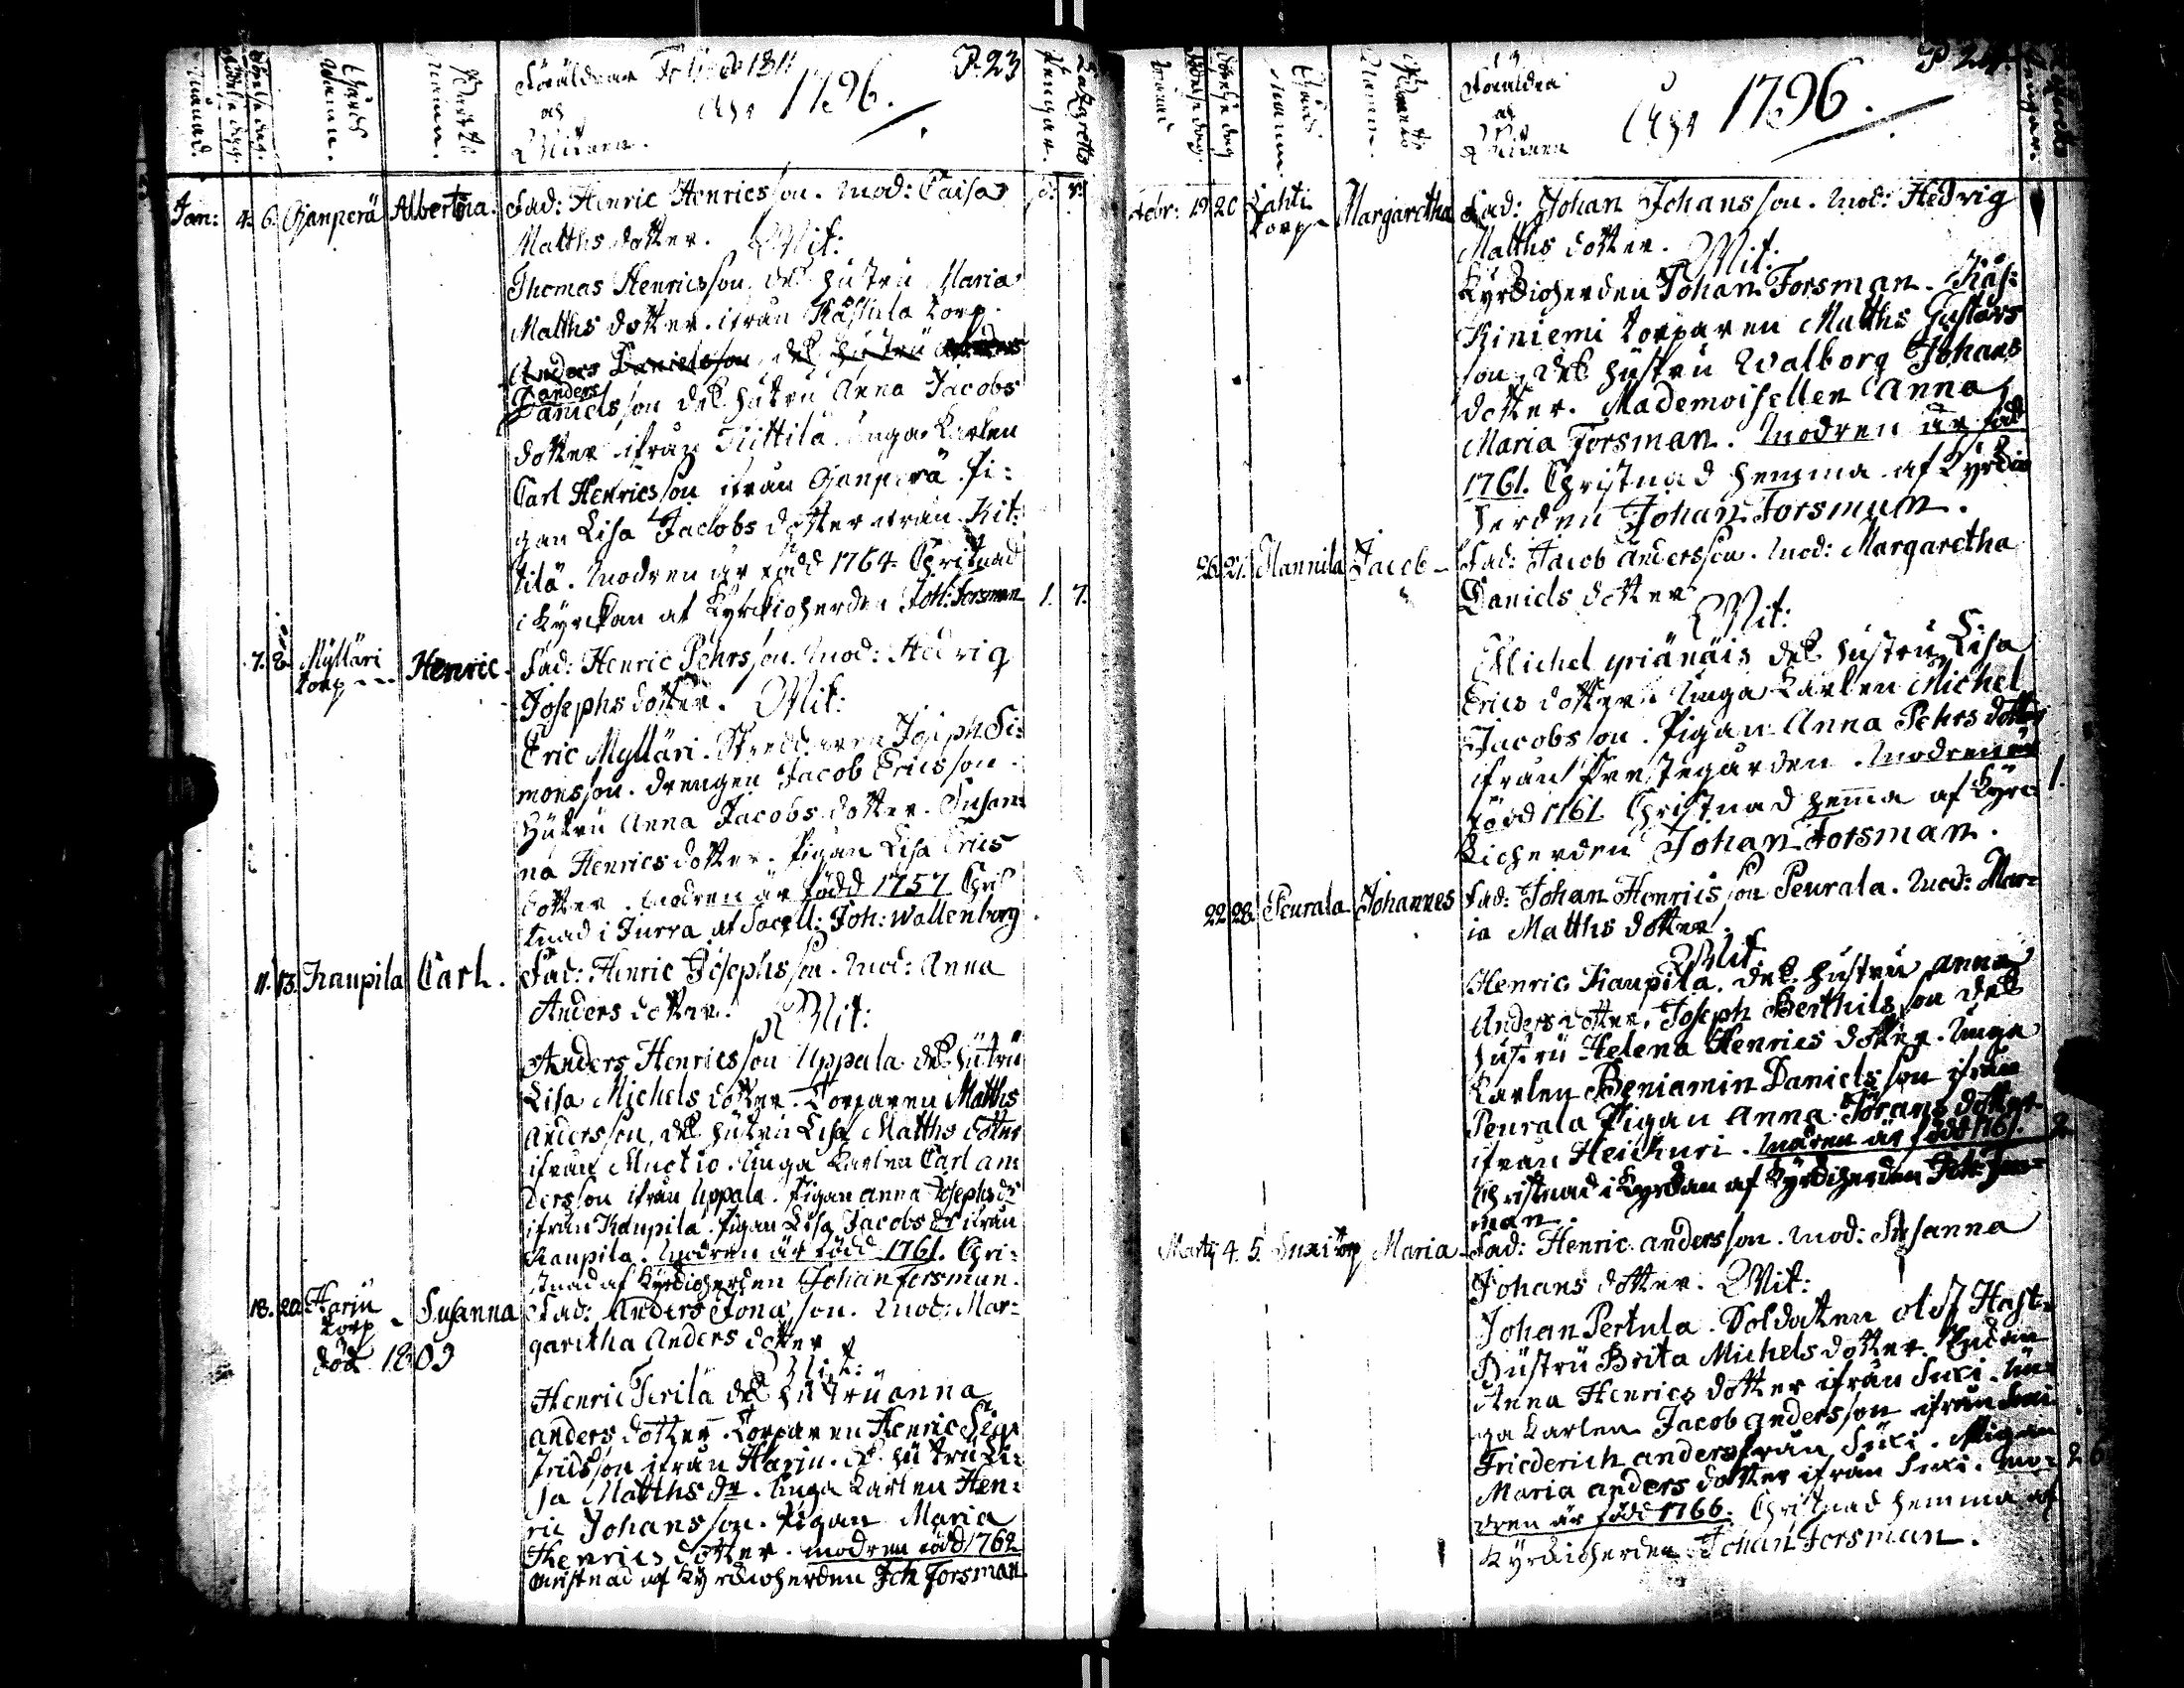 Månad.
Födelse dag.
Döpelse dag.
Gårds
Namn.
Barnets
namn.
Föräldrar
och
Vittnen.
Åhr 1796.
P. 23
Pengar.
Lazaretto
Jan: 4. 6. Ojanperä Albertina. Fad: Henric Henricsson. Mod: Caisa
Matths dotter. Wit:
Thomas Henricsson. des hustru Maria
Matths dotter. ifrån torp.
Anders Danielsson des hustru
Anders
Danielsson des hustru Anna Jacobs
dotter ifrån Kittilä. Unga Karlen
Carl Henricsson ifrån Ojanperä. Pi=
gan Lisa Jacobs dotter ifrån Kit=
tilä. Modren är född 1764. Christnad
i Kyrckan af Kyrckioherden Joh: Forsman 1. 7.
7. 8. Mylläri
torp Henric. Fad: Henric Pehrsson. Mod: Hedvig
Josephs dotter. Wit:
Eric Mylläri. Joseph Si=
monsson. drengen Jacob Ericsson.
Hustru Anna Jacobs dotter. Susan=
na Henrics dotter. Pigan Lisa Erics
dotter. Modren är född 1757 Chri=
stnad i Jurva af Sacell: Joh: Wallenborg
11. 13. Kaupila Carl. Fad: Henric Josephsson. Mod: Anna
Anders dotter. Wit:
Anders Henricsson Uppala des hustru
Lisa Michels dotter. Torparen Matths
Andersson, des hustru Lisa Matths dotter
ifrån Muotio. Unga Karlen Carl An=
dersson ifrån Uppala. Pigan Anna Josephs dr
ifrån Kaupila. Pigan Lisa Jacobs dr ifrån
Kaupila. Modren är född 1761. Chri=
stnad af Kyrckioherden Johan Forsman.
18. 20. Harju
torp Susanna Fad: Anders Jonasson. Mod: Mar=
död 1809 garetha Anders dotter
Wit:
Henric des hustru Anna
Anders dotter. Torparen Henric
fridsson ifrån Harju. des hustru Li=
sa Matths dr. Unga Karlen Hen=
ric Johansson. Pigan Maria
Henrics dotter. Modren född 1762
Christnad af Kyrckioherden Joh Forsman.
Månad
Födelse dag.
Döpelse dag
Gårds
namn
Barnets
Namn.
Föräldrar
och
Vittnen
Åhr 1796.
P 24.
Pengar.
Febr: 19 20 Lahti
torp Margaretha Fad: Johan Johansson. Mod: Hedvig
Matths dotter. Wit:
Kyrckioherden Johan Forsman. Käs=
kiniemi torparen Matths Gustavs
son, des hustru Walborg Johans
dotter. Mademoisellen Anna
Maria Forsman. Modren är född
1761. Christnad hemma af Kyrckio
herden Johan Forsman.
26. 27. Mannila Jacob Fad: Jacob Andersson. Mod: Margaretha
Daniels dotter
Wit:
Michel Yrjänäis des hustru Lisa
Erics dotter. Unga Karlen Michel
Jacobsson. Pigan Anna Pehrs dotter
ifrån Prestegården. Modren är
född 1761 Christnad hemma af Kyrc= 1.
kioherden Johan Forsman.
22 28. Peurala Johannes Fad: Johan Henricsson Peurala. Mod: Mar=
ia Matths dotter.
Wit:
Henric Kaupila. des hustru Anna
Anders dotter. Joseph Berthilsson des
hustru Helena Henrics dotter. Unga
Karlen Beniamin Danielsson ifrån
Peurala Pigan Anna Jörans dotter
ifrån Heickuri. Modren är född 1761. 2
Christnad i Kyrckan af Kyrckioherden Joh. Fors=
man.
Martij 4. 5. Suxi torp Maria Fad: Henric Andersson. Mod: Susanna
Johans dotter. Wit:
Johan Pertula. Soldaten Olof Hast.
Hustru Brita Michels dotter.
Anna Henrics dotter ifrån Suxi. Un=
ga Karlen Jacob Andersson ifrån Suxi
Friederich Anders ifrån Suxi. Pigan
Maria Anders dotter ifrån Suxi. Mo= 2 6
dren är född 1766. Christnad hemma af
Kyrckioherden Johan Forsman.